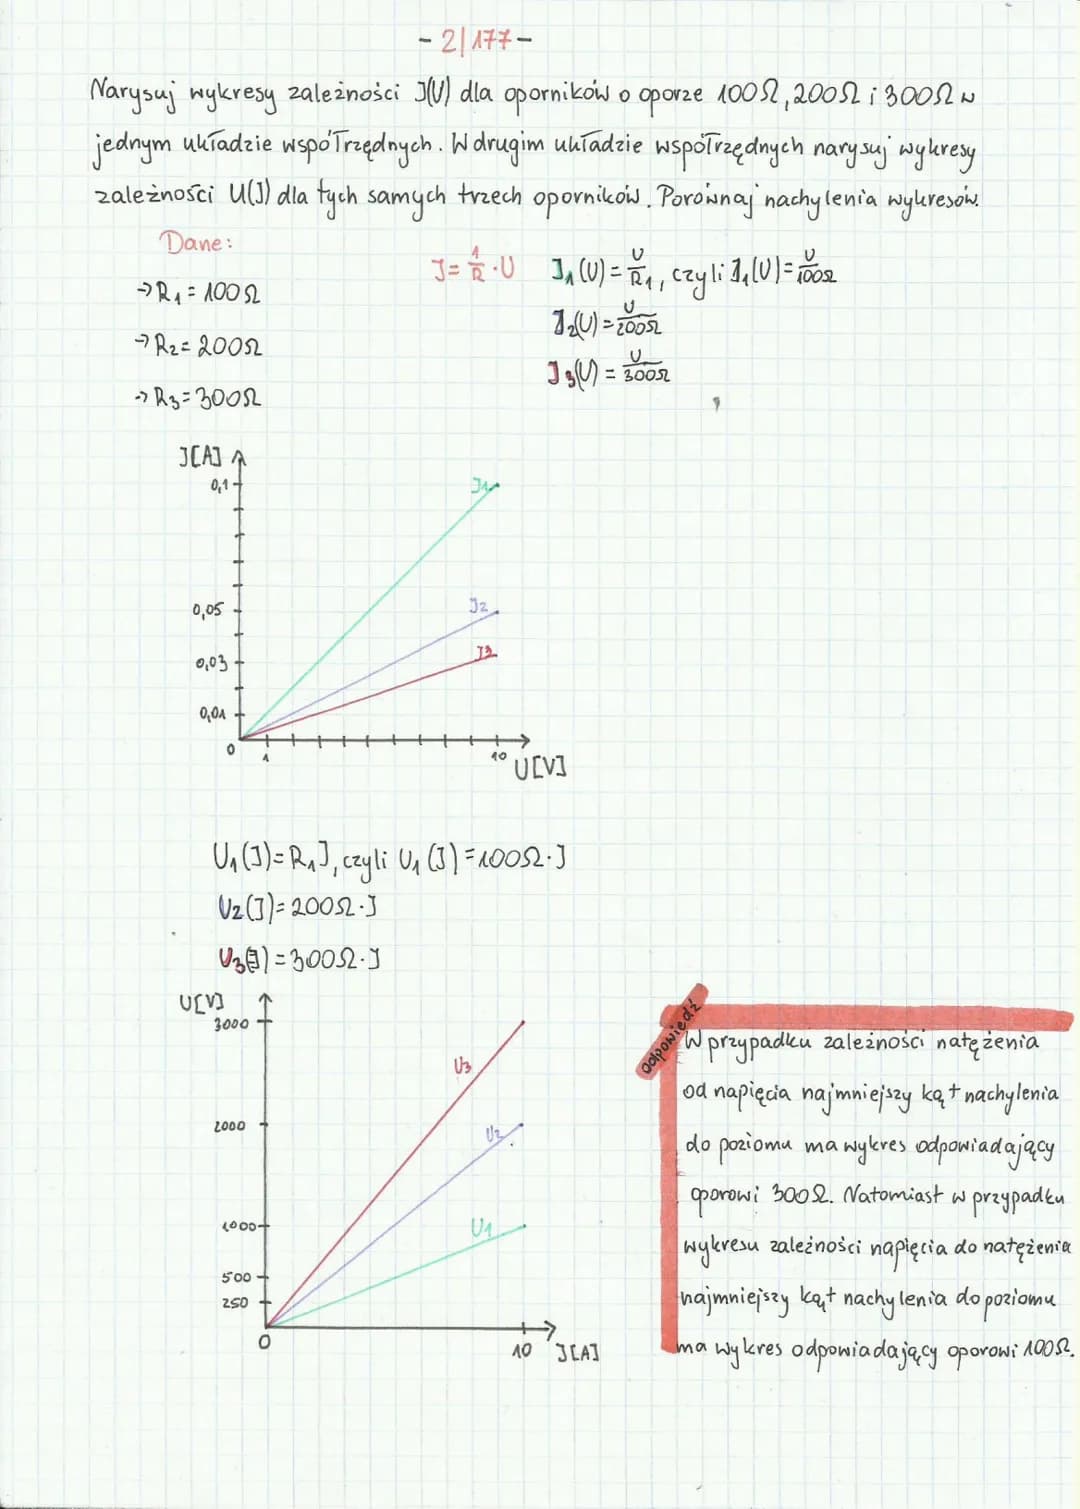 - 2/177 -
Narysuj wykresy zależności J(U) dla oporników o oporze 100Ω, 200Ω i 300Ω w
jednym układzie współrzędnych. W drugim układzie współrzędnych narysuj wykresy
zależności U(J) dla tych samych trzech oporników. Porównaj nachylenia wykresów.
Dane:
J = 1/R · U
J₁(U) = U/R₁, czyli J₁(U) = U/100Ω
→ R₁ = 100Ω
J₂(U) = U/200Ω
→ R₂ = 200Ω
J₃(U) = U/300Ω
→ R₃ = 300Ω
J[A]
0,1
J₁
0,05
J₂
0,03
J₃
0,01
0
1
10
U[V]
U₁(J) = R₁J, czyli U₁(J) = 100Ω·J
U₂(J) = 200Ω·J
U₃(J) = 300Ω·J
U[V]
3000
U₃
2000
U₂
1000
U₁
500
250
0
10
J[A]
odpowiedź
W przypadku zależności natężenia
od napięcia najmniejszy kąt nachylenia
do poziomu ma wykres odpowiadający
oporowi 300Ω. Natomiast w przypadku
wykresu zależności napięcia do natężenia
najmniejszy kąt nachylenia do poziomu
ma wykres odpowiadający oporowi 100Ω.